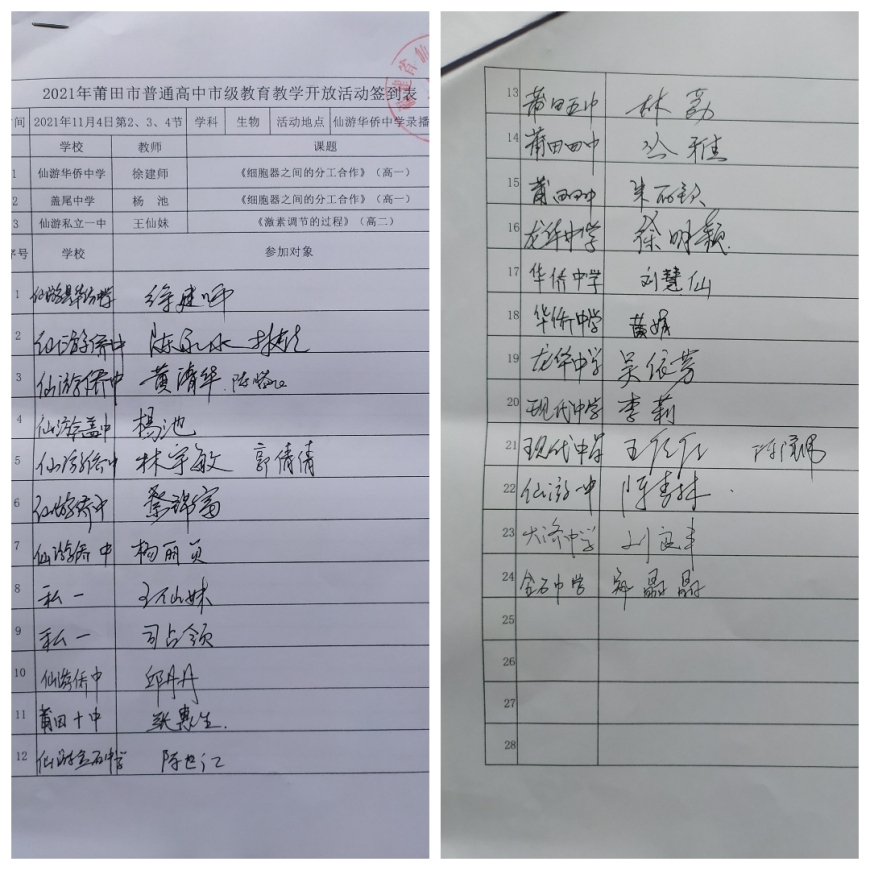 2021年莆田市普通高中市级教育教学开放活动签到表
间 2021年11月4日第2、3、4节 学科 生物 活动地点 仙游华侨中学录播
学校 教师 课题
1 仙游华侨中学 徐建师 《细胞器之间的分工合作》（高一）
2 盖尾中学 杨 池 《细胞器之间的分工合作》（高一）
3 仙游私立一中 王仙妹 《激素调节的过程》（高二）
序号 学校 参加对象
1 徐建师
2 仙游侨中
3 仙游侨中 黄清华
4 仙游盖中 楊池
5 仙游侨中 林宇敏 郭倩倩
6 仙游侨中
7 仙游侨中 杨丽贞
8 私一 王仙妹
9 私一 司占领
10 仙游侨中 邱丹丹
11 莆田十中 张惠生
12 仙游金石中学
13 莆田五中 林荔
14 莆田四中 丛雅
15 莆田四中
16 龙华中学 徐明颖
17 华侨中学 刘慧仙
18 华侨中学 黄娟
19 龙华中学 吴依芳
20 现代中学 李莉
21 现代中学
22 仙游一中
23 大济中学
24 金石中学 郭晶晶
25
26
27
28